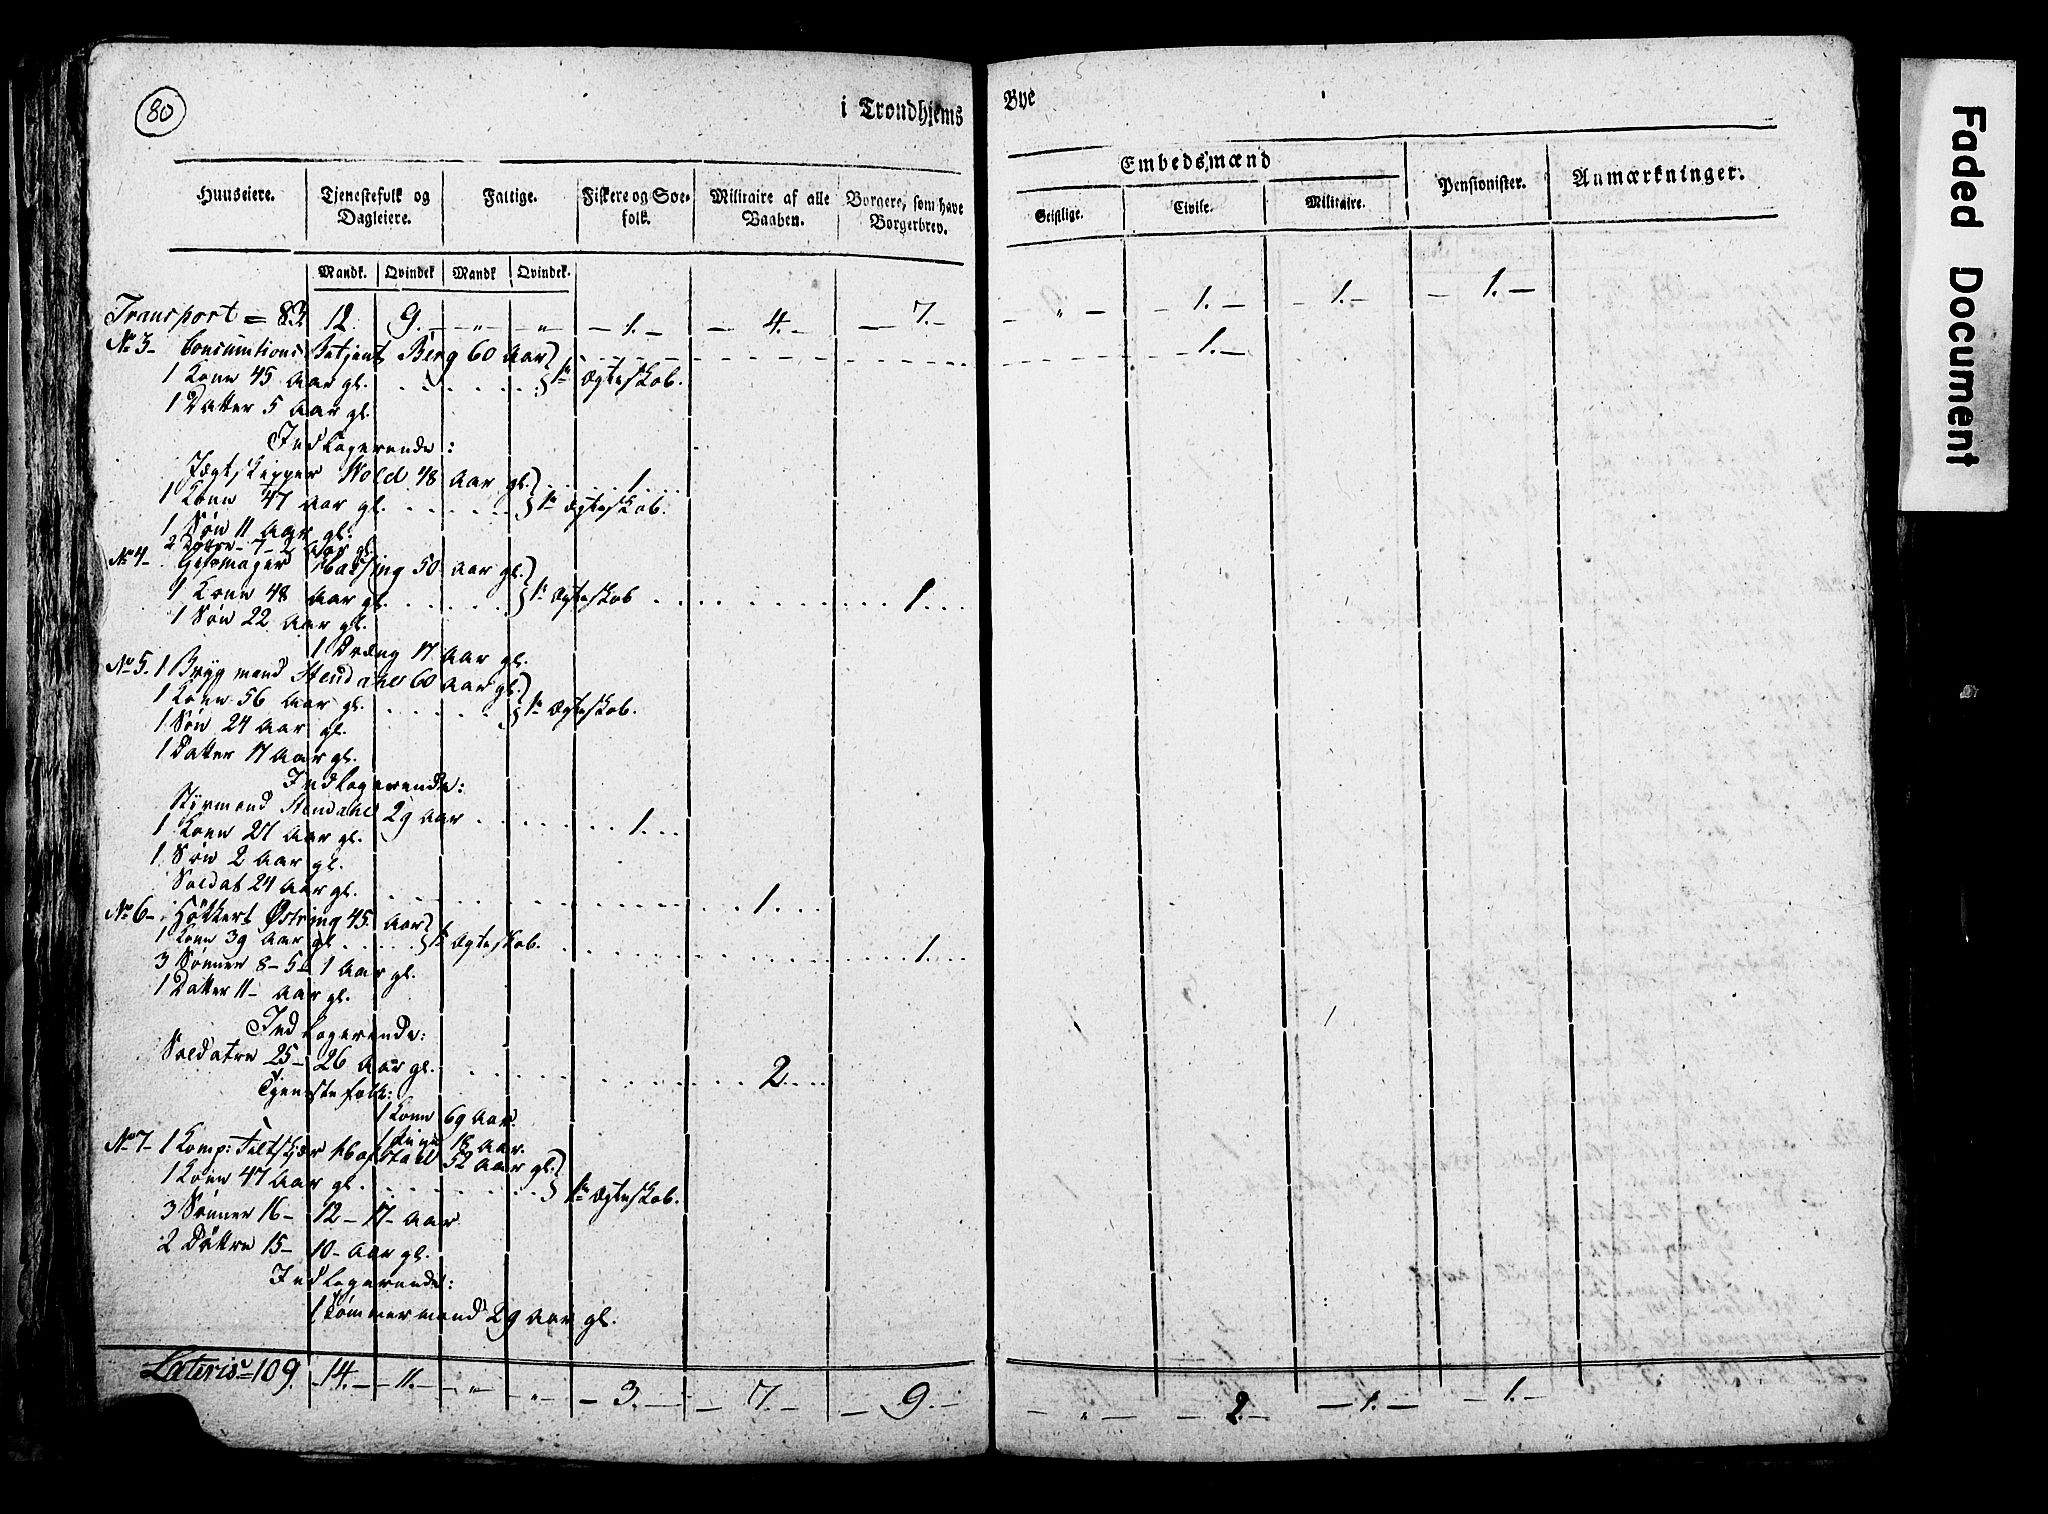 80
i Trondhjems Bye
Huuseiere. Tjenestefolk og Dagleiere. Fattige. Fiskere og Søefolk. Militaire af alle Vaaben. Borgere, som have Borgerbrev. Embedsmænd Pensionister. Anmærkninger.
Geistlige. Civile. Militaire.
Mandk. Qvindek Mandk Qvindek.
Transport = 83 12. 9. – „ – „ – 1. – – 4. – – 7. – – „ – – 1. – – 1. – – 1. –
No 3 – Consumtions Betjent Berg 60 Aar – 1. –
1 Kone 45 Aar gl. 1te Ægteskab.
1 Datter 5 Aar gl.
Indlogerende:
Jægtskipper Wold 48 Aar gl. 1.
1 Kone 47 Aar gl. 1te Ægteskab.
1 Søn 11 Aar gl.
2 Døtre 7 – 2 Aar gl.
No 4 – Hassing 50 Aar gl.
1 Kone 48 Aar gl. 1te Ægteskab 1.
1 Søn 22 Aar gl.
1 Dreng 17 Aar gl.
No 5. 1 Brygmand Stendahl 60 Aar gl.
1 Kone 56 Aar gl. 1te Ægteskab.
1 Søn 24 Aar gl.
1 Datter 17 Aar gl.
Indlogerende:
Styrmand Stendahl 29 Aar 1.
1 Kone 27 Aar gl.
1 Søn 2 Aar gl.
Soldat 24 Aar gl. 1.
No 6 – Høkkert Østring 45 Aar
1 Kone 39 Aar gl. 1te Ægteskab. 1.
3 Sønner 8 – 5 – 1 Aar gl.
1 Datter 11 – Aar gl.
Indlogerende:
Soldater 25 – 26 Aar gl. 2.
Tjenestefolk:
1 Kone 69 Aar.
1 Pige 18 Aar.
No 7 – 1 Komp: Feltskjær 52 Aar gl.
1 Kone 47 Aar gl. 1te Ægteskab.
3 Sønner 16 – 12 – 17 – Aar
2 Døttre 15 – 10 – Aar gl.
Indlogerende:
1 Tømmermand 29 Aar gl.
Lateris – 109 14. – 11. – „ – „ – 3. – – 7. – – 9. – – „ – – 2. – – 1. – – 1. –
Faded Document